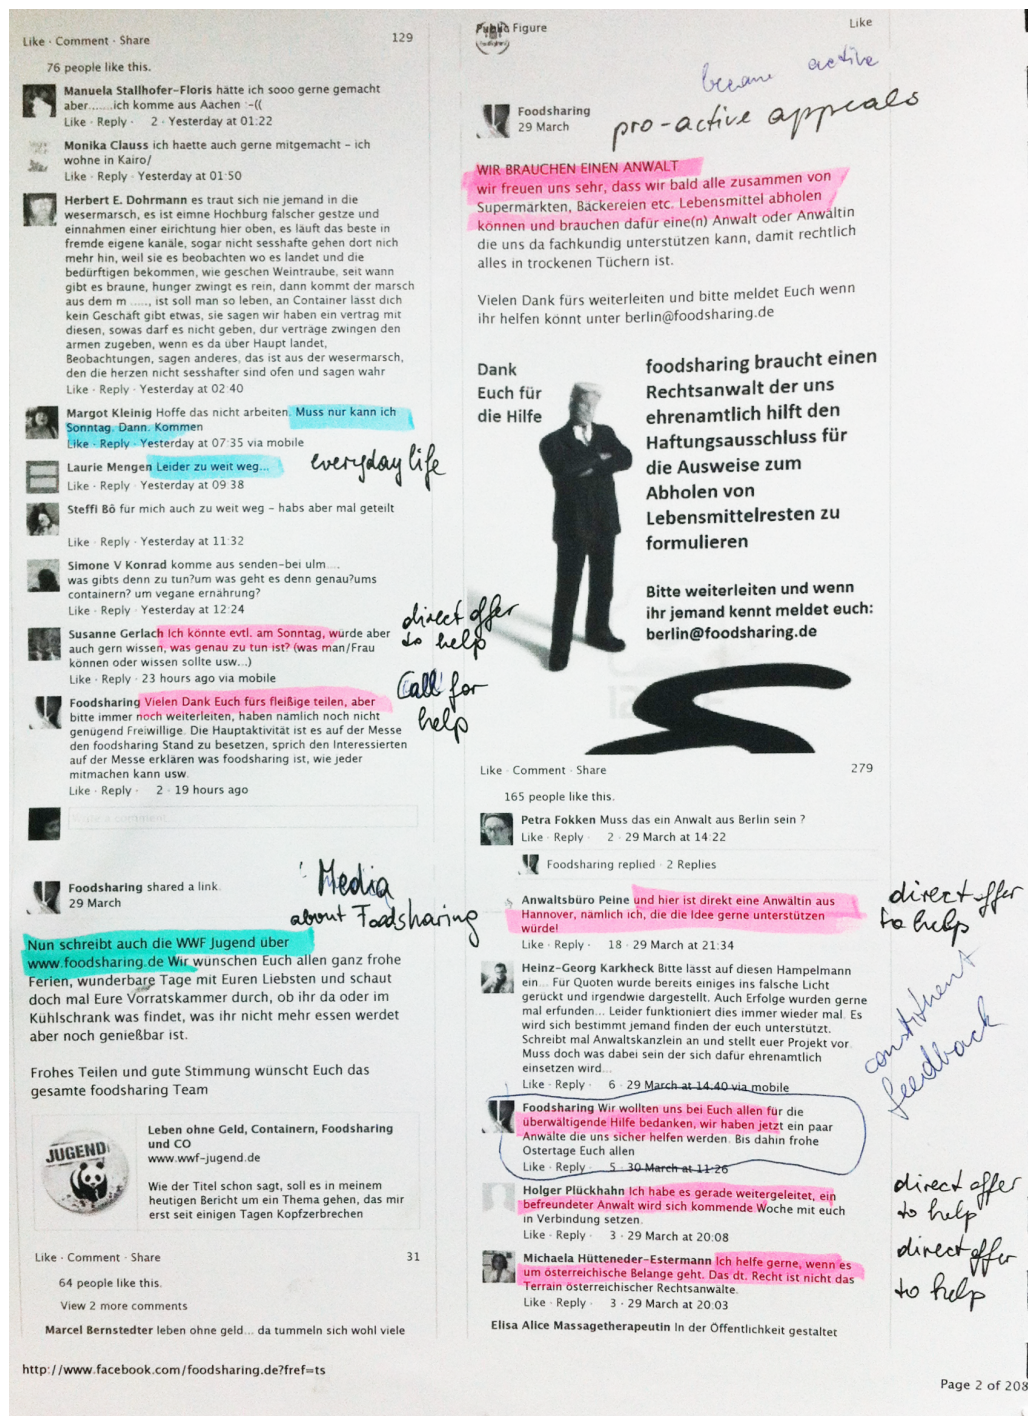 Like · Comment · Share 129
76 people like this.
Manuela Stallhofer-Floris hätte ich sooo gerne gemacht
aber.......ich komme aus Aachen :-((
Like · Reply · 2 · Yesterday at 01:22
Monika Clauss ich haette auch gerne mitgemacht - ich
wohne in Kairo/
Like · Reply · Yesterday at 01:50
Herbert E. Dohrmann es traut sich nie jemand in die
wesermarsch, es ist eimne Hochburg falscher gestze und
einnahmen einer eirichtung hier oben, es läuft das beste in
fremde eigene kanäle, sogar nicht sesshafte gehen dort nich
mehr hin, weil sie es beobachten wo es landet und die
bedürftigen bekommen, wie geschen Weintraube, seit wann
gibt es braune, hunger zwingt es rein, dann kommt der marsch
aus dem m ....., ist soll man so leben, an Container lässt dich
kein Geschäft gibt etwas, sie sagen wir haben ein vertrag mit
diesen, sowas darf es nicht geben, dur verträge zwingen den
armen zugeben, wenn es da über Haupt landet,
Beobachtungen, sagen anderes, das ist aus der wesermarsch,
den die herzen nicht sesshafter sind ofen und sagen wahr
Like · Reply · Yesterday at 02:40
Margot Kleinig Hoffe das nicht arbeiten. Muss nur kann ich
Sonntag. Dann. Kommen
Like · Reply · Yesterday at 07:35 via mobile
Laurie Mengen Leider zu weit weg...
Like · Reply · Yesterday at 09:38
everyday life
Steffi Bö für mich auch zu weit weg - habs aber mal geteilt
Like · Reply · Yesterday at 11:32
Simone V Konrad komme aus senden-bei ulm....
was gibts denn zu tun?um was geht es denn genau?ums
containern? um vegane ernährung?
Like · Reply · Yesterday at 12:24
Susanne Gerlach Ich könnte evtl. am Sonntag, würde aber
auch gern wissen, was genau zu tun ist? (was man/Frau
können oder wissen sollte usw...)
Like · Reply · 23 hours ago via mobile
direct offer
to help
Foodsharing Vielen Dank Euch fürs fleißige teilen, aber
bitte immer noch weiterleiten, haben nämlich noch nicht
genügend Freiwillige. Die Hauptaktivität ist es auf der Messe
den foodsharing Stand zu besetzen, sprich den Interessierten
auf der Messe erklären was foodsharing ist, wie jeder
mitmachen kann usw.
Like · Reply · 2 · 19 hours ago
Call for
help
Write a comment...
Foodsharing shared a link.
29 March
Media
about Foodsharing
Nun schreibt auch die WWF Jugend über
www.foodsharing.de Wir wünschen Euch allen ganz frohe
Ferien, wunderbare Tage mit Euren Liebsten und schaut
doch mal Eure Vorratskammer durch, ob ihr da oder im
Kühlschrank was findet, was ihr nicht mehr essen werdet
aber noch genießbar ist.
Frohes Teilen und gute Stimmung wünscht Euch das
gesamte foodsharing Team
JUGEND
Leben ohne Geld, Containern, Foodsharing
und CO
www.wwf-jugend.de
Wie der Titel schon sagt, soll es in meinem
heutigen Bericht um ein Thema gehen, das mir
erst seit einigen Tagen Kopfzerbrechen
Like · Comment · Share 31
64 people like this.
View 2 more comments
Marcel Bernstedter leben ohne geld... da tummeln sich wohl viele
Public Figure Like
became active
pro-active appeals
Foodsharing
29 March
WIR BRAUCHEN EINEN ANWALT
wir freuen uns sehr, dass wir bald alle zusammen von
Supermärkten, Bäckereien etc. Lebensmittel abholen
können und brauchen dafür eine(n) Anwalt oder Anwältin
die uns da fachkundig unterstützen kann, damit rechtlich
alles in trockenen Tüchern ist.
Vielen Dank fürs weiterleiten und bitte meldet Euch wenn
ihr helfen könnt unter berlin@foodsharing.de
Dank
Euch für
die Hilfe
foodsharing braucht einen
Rechtsanwalt der uns
ehrenamtlich hilft den
Haftungsausschluss für
die Ausweise zum
Abholen von
Lebensmittelresten zu
formulieren
Bitte weiterleiten und wenn
ihr jemand kennt meldet euch:
berlin@foodsharing.de
Like · Comment · Share 279
165 people like this.
Petra Fokken Muss das ein Anwalt aus Berlin sein ?
Like · Reply · 2 · 29 March at 14:22
Foodsharing replied · 2 Replies
Anwaltsbüro Peine und hier ist direkt eine Anwältin aus
Hannover, nämlich ich, die die Idee gerne unterstützen
würde!
Like · Reply · 18 · 29 March at 21:34
direct offer
to help
Heinz-Georg Karkheck Bitte lasst auf diesen Hampelmann
ein... Für Quoten wurde bereits einiges ins falsche Licht
gerückt und irgendwie dargestellt. Auch Erfolge wurden gerne
mal erfunden... Leider funktioniert dies immer wieder mal. Es
wird sich bestimmt jemand finden der euch unterstützt.
Schreibt mal Anwaltskanzlein an und stellt euer Projekt vor.
Muss doch was dabei sein der sich dafür ehrenamtlich
einsetzen wird...
Like · Reply · 6 · 29 March at 14:40 via mobile
constituent
feedback
Foodsharing Wir wollten uns bei Euch allen für die
überwältigende Hilfe bedanken, wir haben jetzt ein paar
Anwälte die uns sicher helfen werden. Bis dahin frohe
Ostertage Euch allen
Like · Reply · 5 · 30 March at 11:26
Holger Plückhahn Ich habe es gerade weitergeleitet, ein
befreundeter Anwalt wird sich kommende Woche mit euch
in Verbindung setzen.
Like · Reply · 3 · 29 March at 20:08
direct offer
to help
Michaela Hütteneder-Estermann Ich helfe gerne, wenn es
um österreichische Belange geht. Das dt. Recht ist nicht das
Terrain österreichischer Rechtsanwälte.
Like · Reply · 3 · 29 March at 20:03
direct offer
to help
Elisa Alice Massagetherapeutin In der Öffentlichkeit gestaltet
http://www.facebook.com/foodsharing.de?fref=ts
Page 2 of 208